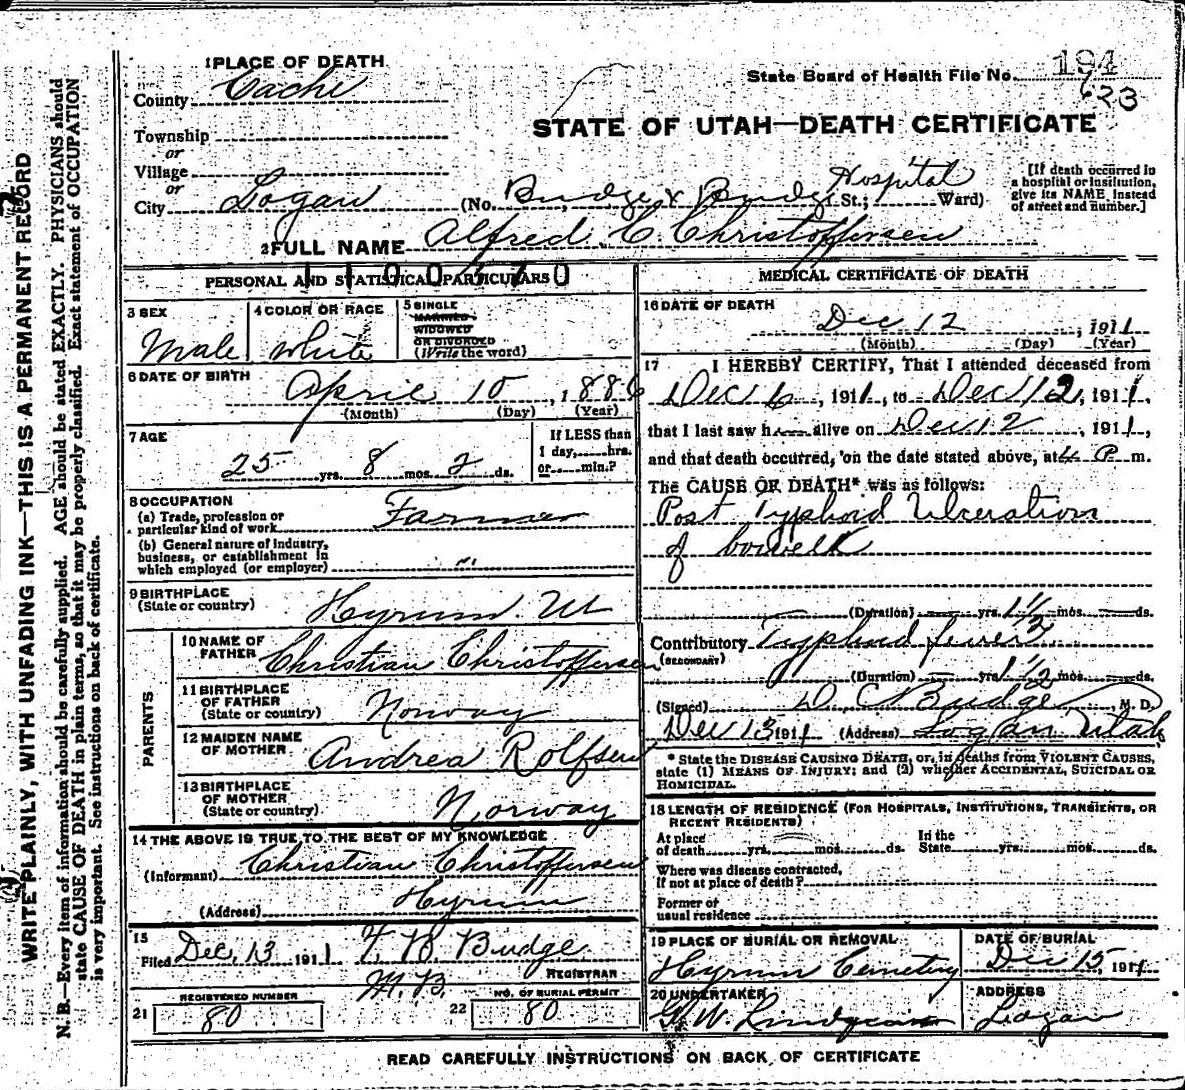 1 PLACE OF DEATH
County Cache
Township
or
Village
or
City Logan (No. Budge & Budge Hospital St.; Ward)
State Board of Health File No. 194
623
STATE OF UTAH—DEATH CERTIFICATE
[If death occurred in
a hospital or institution,
give its NAME instead
of street and number.]
2 FULL NAME Alfred C Christoffersen
PERSONAL AND STATISTICAL PARTICULARS
3 SEX
Male
4 COLOR OR RACE
White
5 SINGLE
MARRIED
WIDOWED
OR DIVORCED
(Write the word)
6 DATE OF BIRTH
April 10, 1886
(Month) (Day) (Year)
7 AGE
25 yrs. 8 mos. 2 ds.
If LESS than
1 day,......hrs.
or......min.?
8 OCCUPATION
(a) Trade, profession or
particular kind of work Farmer
(b) General nature of industry,
business, or establishment in
which employed (or employer) "
9 BIRTHPLACE
(State or country) Hyrum Ut
PARENTS
10 NAME OF
FATHER Christian Christoffersen
11 BIRTHPLACE
OF FATHER
(State or country) Norway
12 MAIDEN NAME
OF MOTHER Andrea Rolfsen
13 BIRTHPLACE
OF MOTHER
(State or country) Norway
14 THE ABOVE IS TRUE TO THE BEST OF MY KNOWLEDGE
(Informant) Christian Christoffersen
(Address) Hyrum
15
Filed Dec. 13 1911 T. B. Budge
M.D. REGISTRAR
REGISTERED NUMBER
21 80
NO. OF BURIAL PERMIT
22 80
MEDICAL CERTIFICATE OF DEATH
16 DATE OF DEATH
Dec 12, 1911
(Month) (Day) (Year)
17 I HEREBY CERTIFY, That I attended deceased from
Dec 6, 1911, to Dec 12, 1911,
that I last saw h alive on Dec 12, 1911,
and that death occurred, on the date stated above, at 4 P m.
The CAUSE OF DEATH* was as follows:
Post Typhoid Ulceration
of bowels
(Duration) yrs. 1 1/2 mos. ds.
Contributory Typhoid fever
(SECONDARY)
(Duration) yrs. 1 1/2 mos. ds.
(Signed) D. C. Budge, M. D.
Dec 13 1911 (Address) Logan Utah
* State the DISEASE CAUSING DEATH, or, in deaths from VIOLENT CAUSES,
state (1) MEANS OF INJURY; and (2) whether ACCIDENTAL, SUICIDAL OR
HOMICIDAL.
18 LENGTH OF RESIDENCE (FOR HOSPITALS, INSTITUTIONS, TRANSIENTS, OR
RECENT RESIDENTS)
At place
of death......yrs......mos......ds.
In the
State......yrs......mos......ds.
Where was disease contracted,
if not at place of death?
Former or
usual residence
19 PLACE OF BURIAL OR REMOVAL
Hyrum Cemetery
DATE OF BURIAL
Dec 15, 1911
20 UNDERTAKER
ADDRESS
Logan
READ CAREFULLY INSTRUCTIONS ON BACK OF CERTIFICATE
WRITE PLAINLY, WITH UNFADING INK—THIS IS A PERMANENT RECORD
N. B.—Every item of information should be carefully supplied. AGE should be stated EXACTLY. PHYSICIANS should
state CAUSE OF DEATH in plain terms, so that it may be properly classified. Exact statement of OCCUPATION
is very important. See instructions on back of certificate.